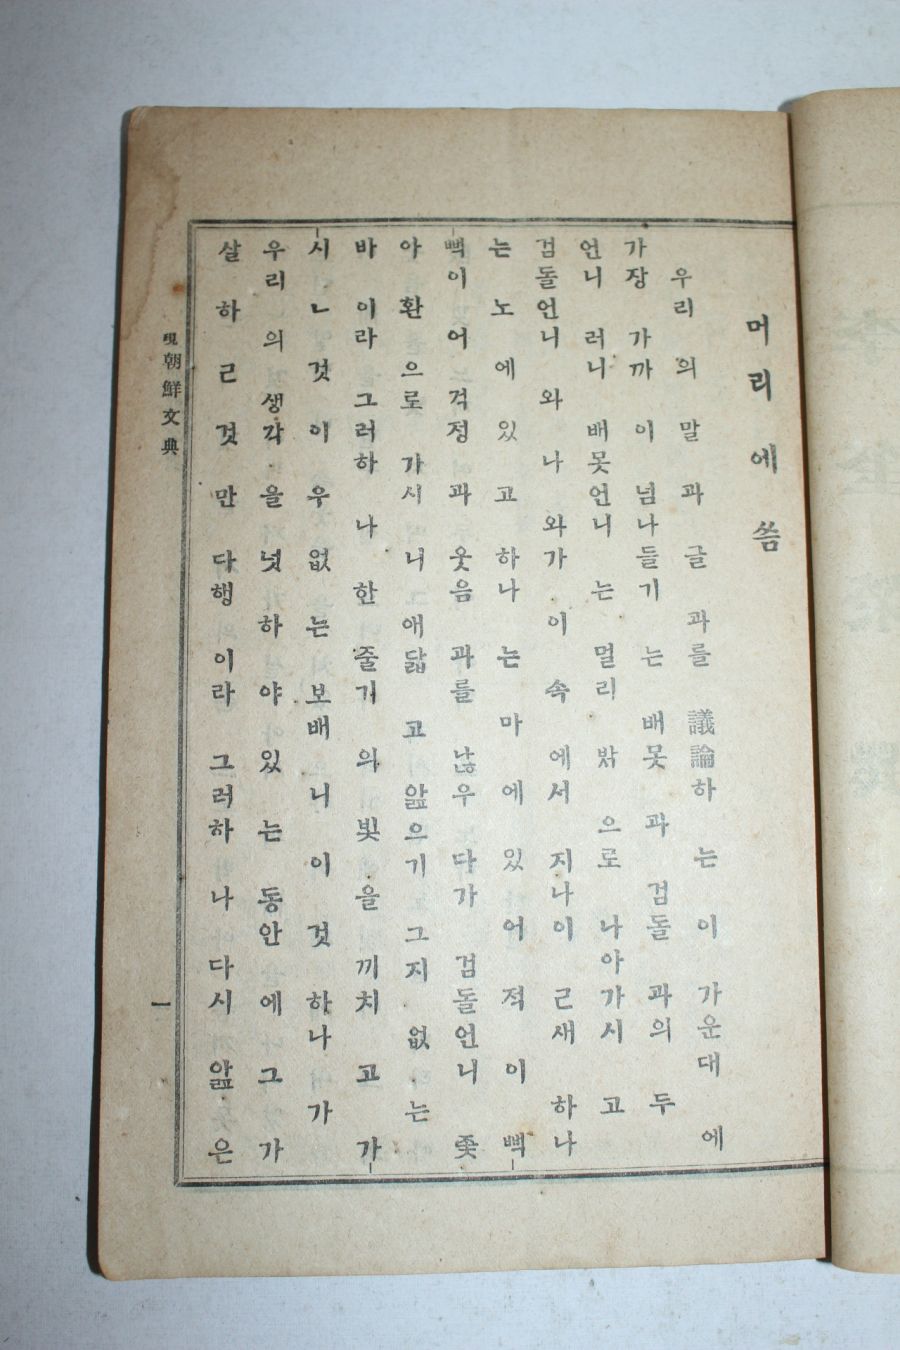 머리에씀
우리의 말과 글과를 議論하는 이 가운대에
가장 가까이 넘나들기는 배못과 검돌과의 두
언니러니 배못언니는 멀리 밖으로 나아가시고
검돌언니와 나와가 이 속에서 지나이 ᄃ새 하나
는 노에 있고 하나는 마에 있어 적이
이 어 걱정과 웃음과를 낳우다가 검돌언니
아 환으로 가시니 그 애닯고 앎으기 그지없는
바이라 그러하나 한 줄기의 빛을 끼치고 가
시ᄂ 것이 우 없는 보배니 이 것 하나가
우리의 생각을 넛하야 있는 동안에 그가
살하 ᄅ 것만 다행이라 그러하나 다시 앏은
現朝鮮文典
一